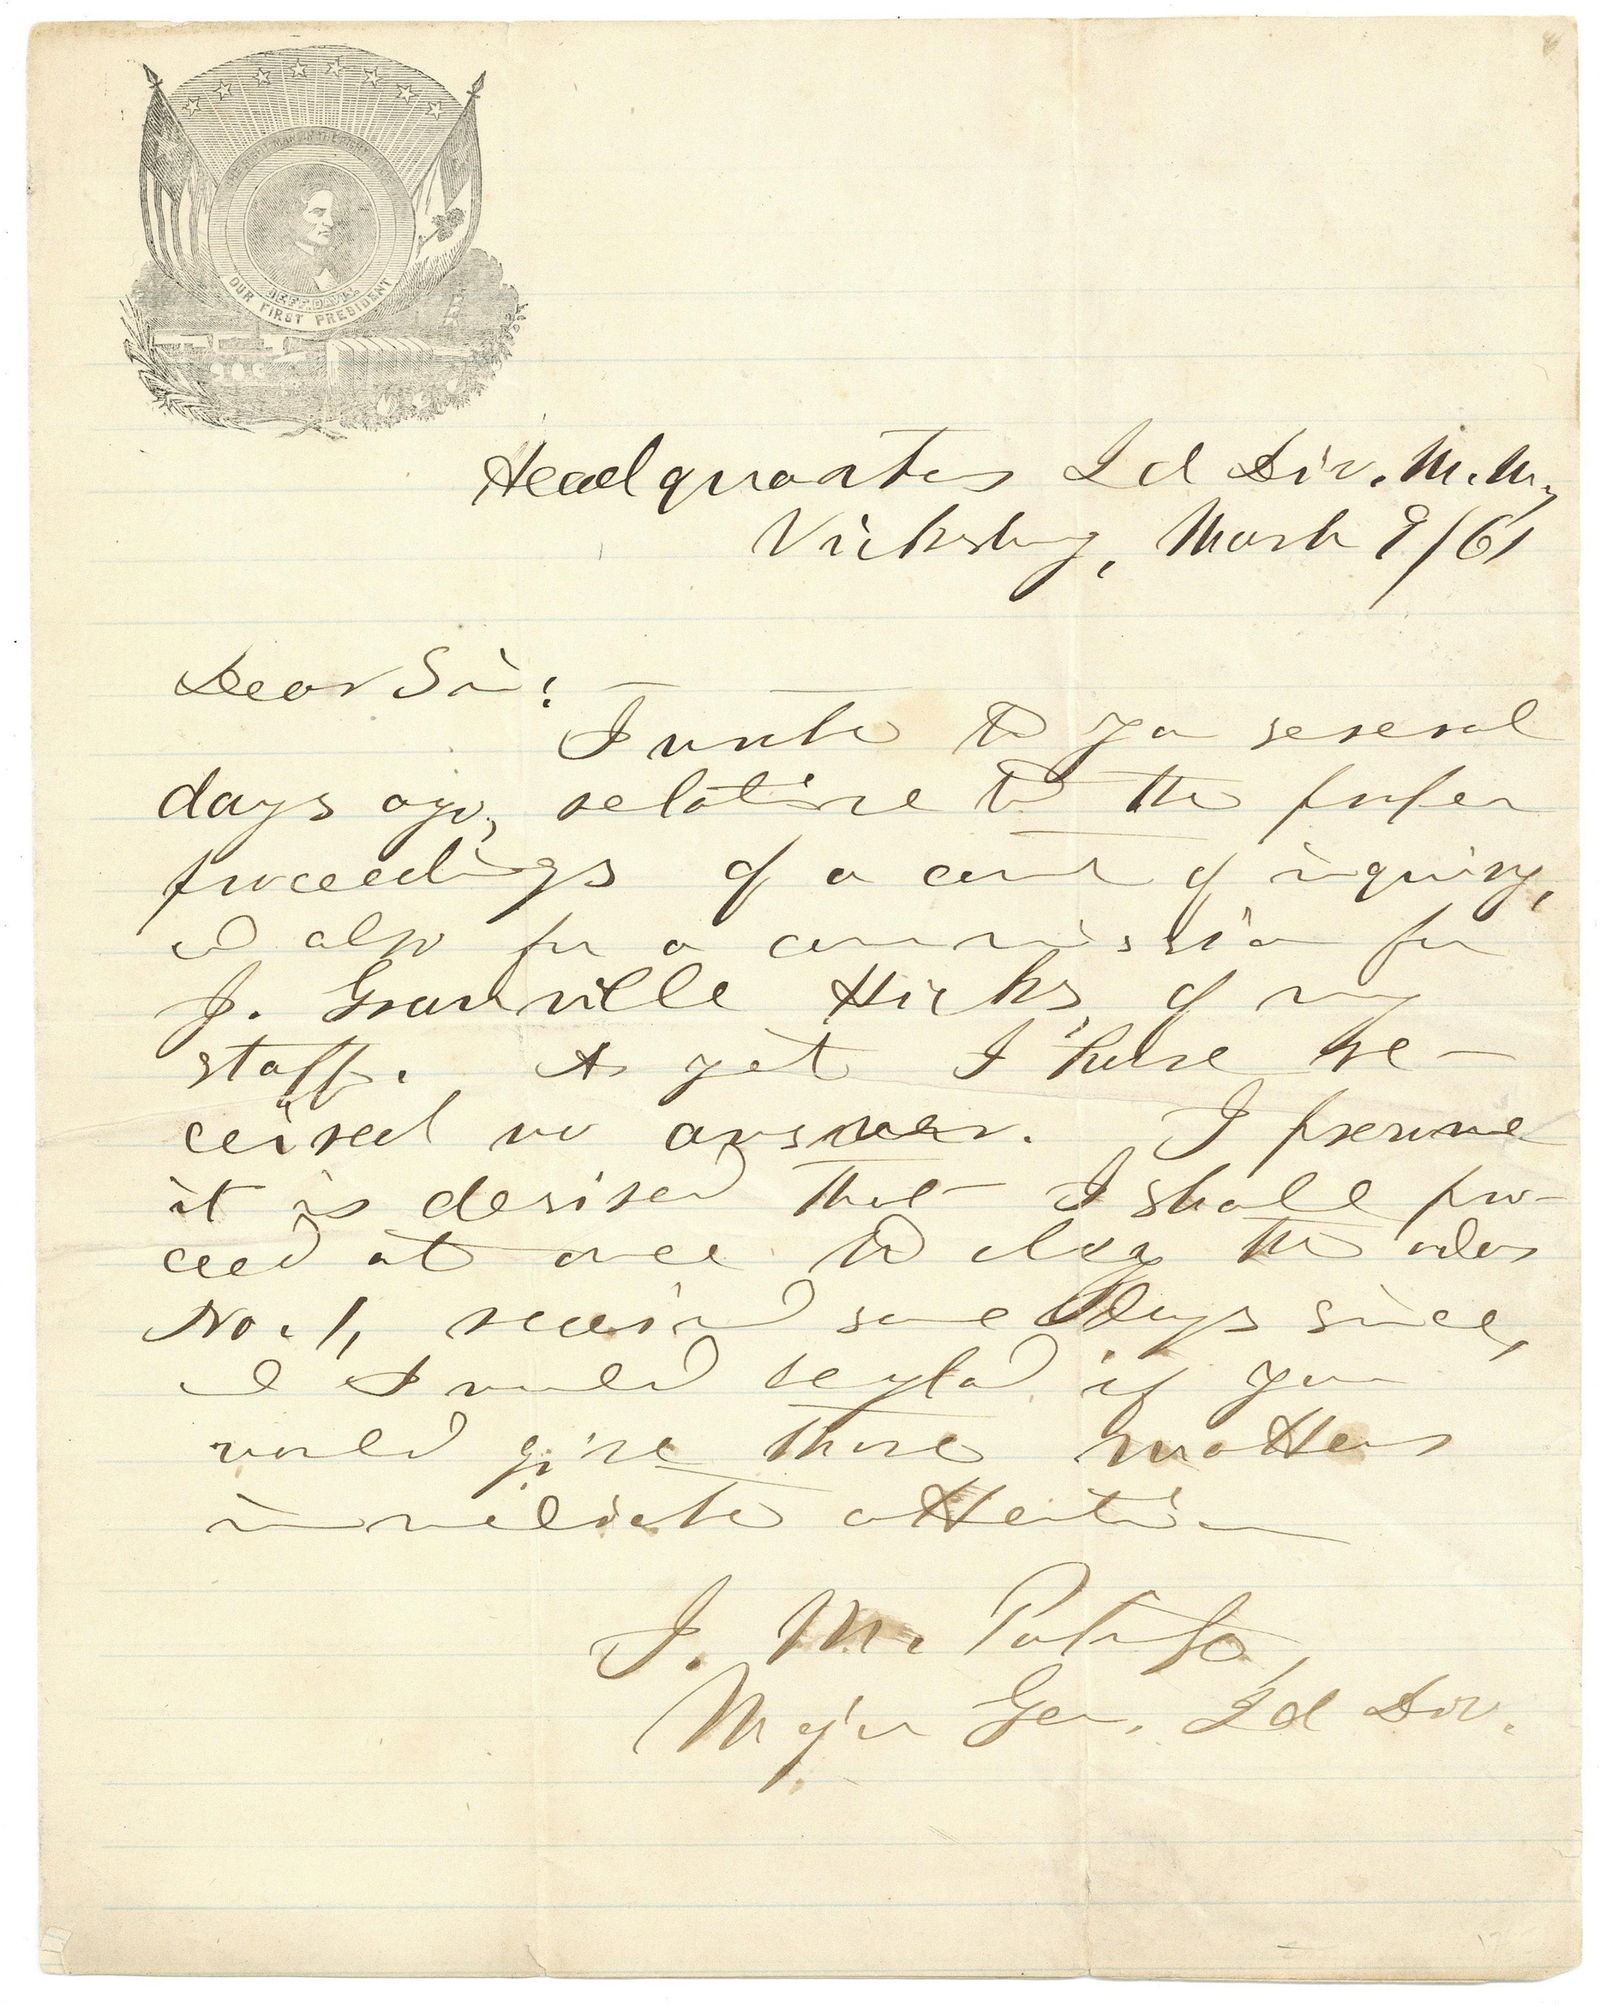 THE RIGHT MAN IN THE RIGHT PLACE
JEFF. DAVIS.
OUR FIRST PRESIDENT
Headquarters 2d Div. M.M.,
Vicksburg, March 9/61
Dear Sir:—
I wrote to you several
days ago, relative to the proper
proceedings of a court of inquiry,
& also for a commission for
J. Granville Hicks, of my
staff. As yet I have re-
ceived no answer. I presume
it is desired that I shall pro-
ceed at once to obey the orders
No. 1, received some days since,
& I would be glad if you
would give these matters
immediate attention
J. M. Patridge,
Major Gen. 2d Div.